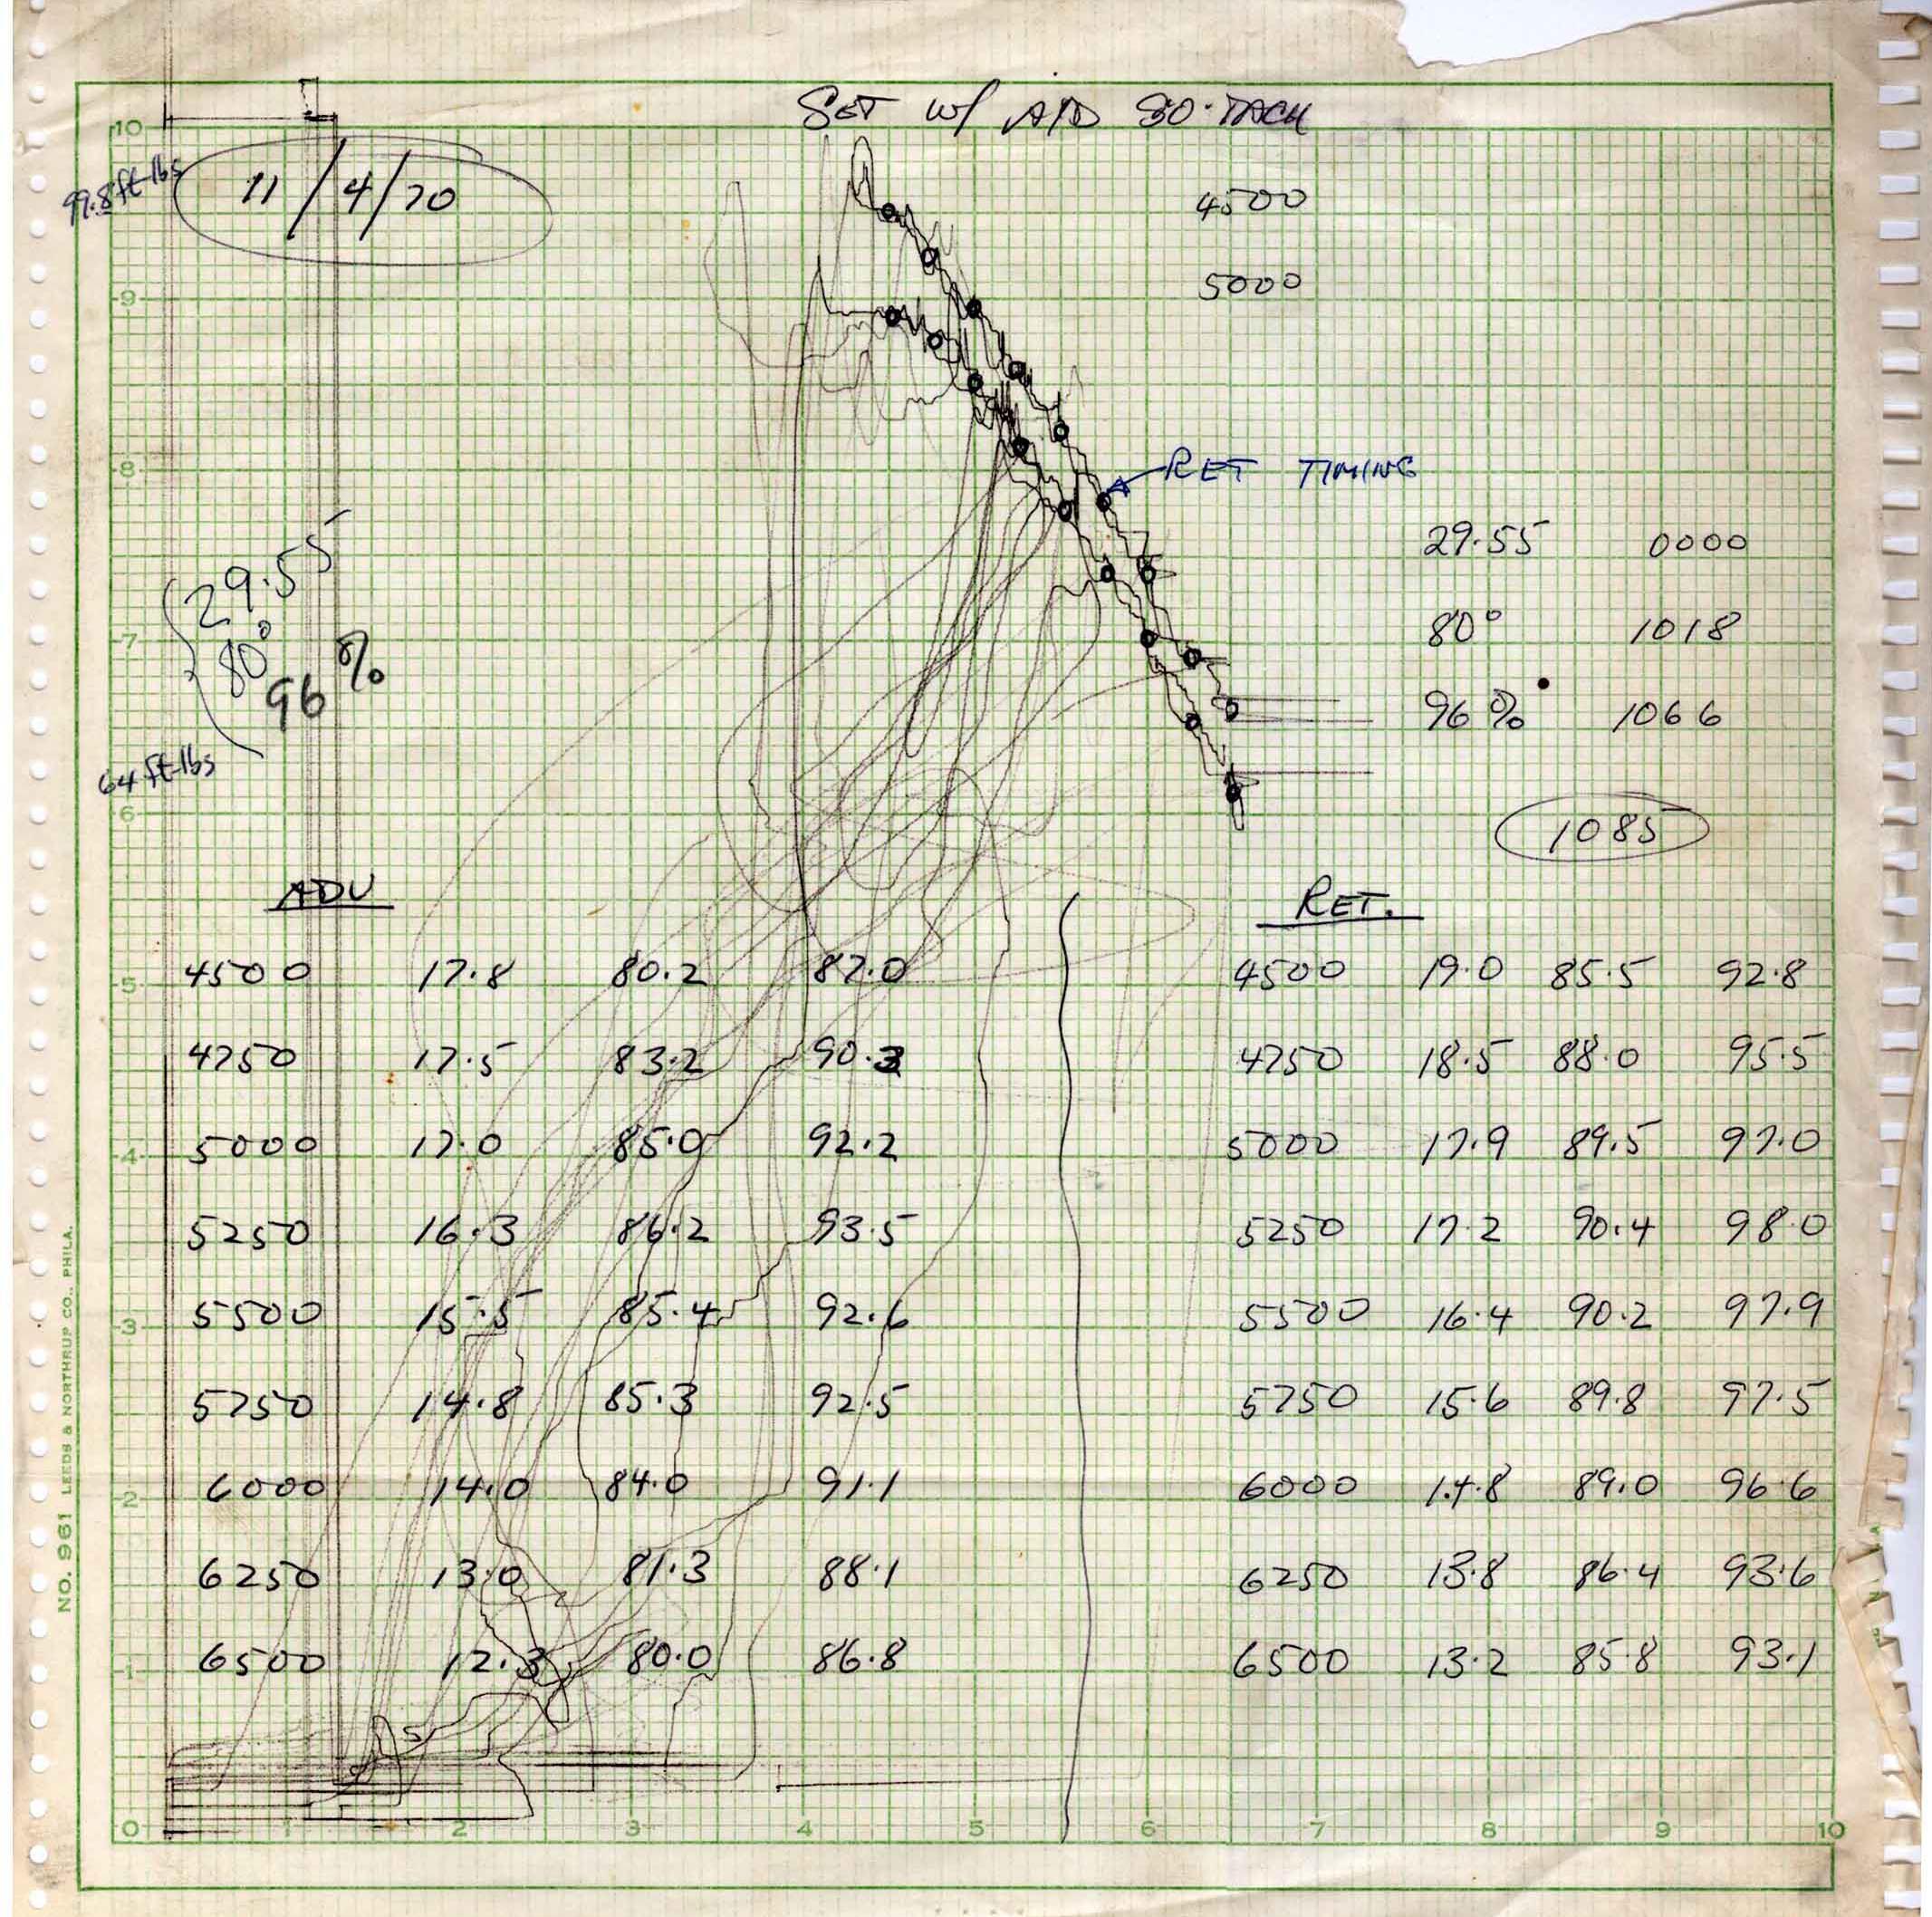 SET W/ A/D SO-TACH
10
99.8 ft-lbs
11/4/70
4500
5000
9
8
RET TIMING
29.55
80°
96%
29.55 0000
80° 1018
96% 1066
7
64 ft-lbs
6
1085
ADV
RET.
4500 17.8 80.2 87.0
4500 19.0 85.5 92.8
5
4750 17.5 83.2 90.3
4750 18.5 88.0 95.5
5000 17.0 85.0 92.2
5000 17.9 89.5 97.0
4
5250 16.3 86.2 93.5
5250 17.2 90.4 98.0
5500 15.5 85.4 92.6
5500 16.4 90.2 97.9
3
5750 14.8 85.3 92.5
5750 15.6 89.8 97.5
6000 14.0 84.0 91.1
6000 14.8 89.0 96.6
2
6250 13.0 81.3 88.1
6250 13.8 86.4 93.6
6500 12.3 80.0 86.8
6500 13.2 85.8 93.1
1
0 1 2 3 4 5 6 7 8 9 10
NO. 961 LEEDS & NORTHRUP CO., PHILA.